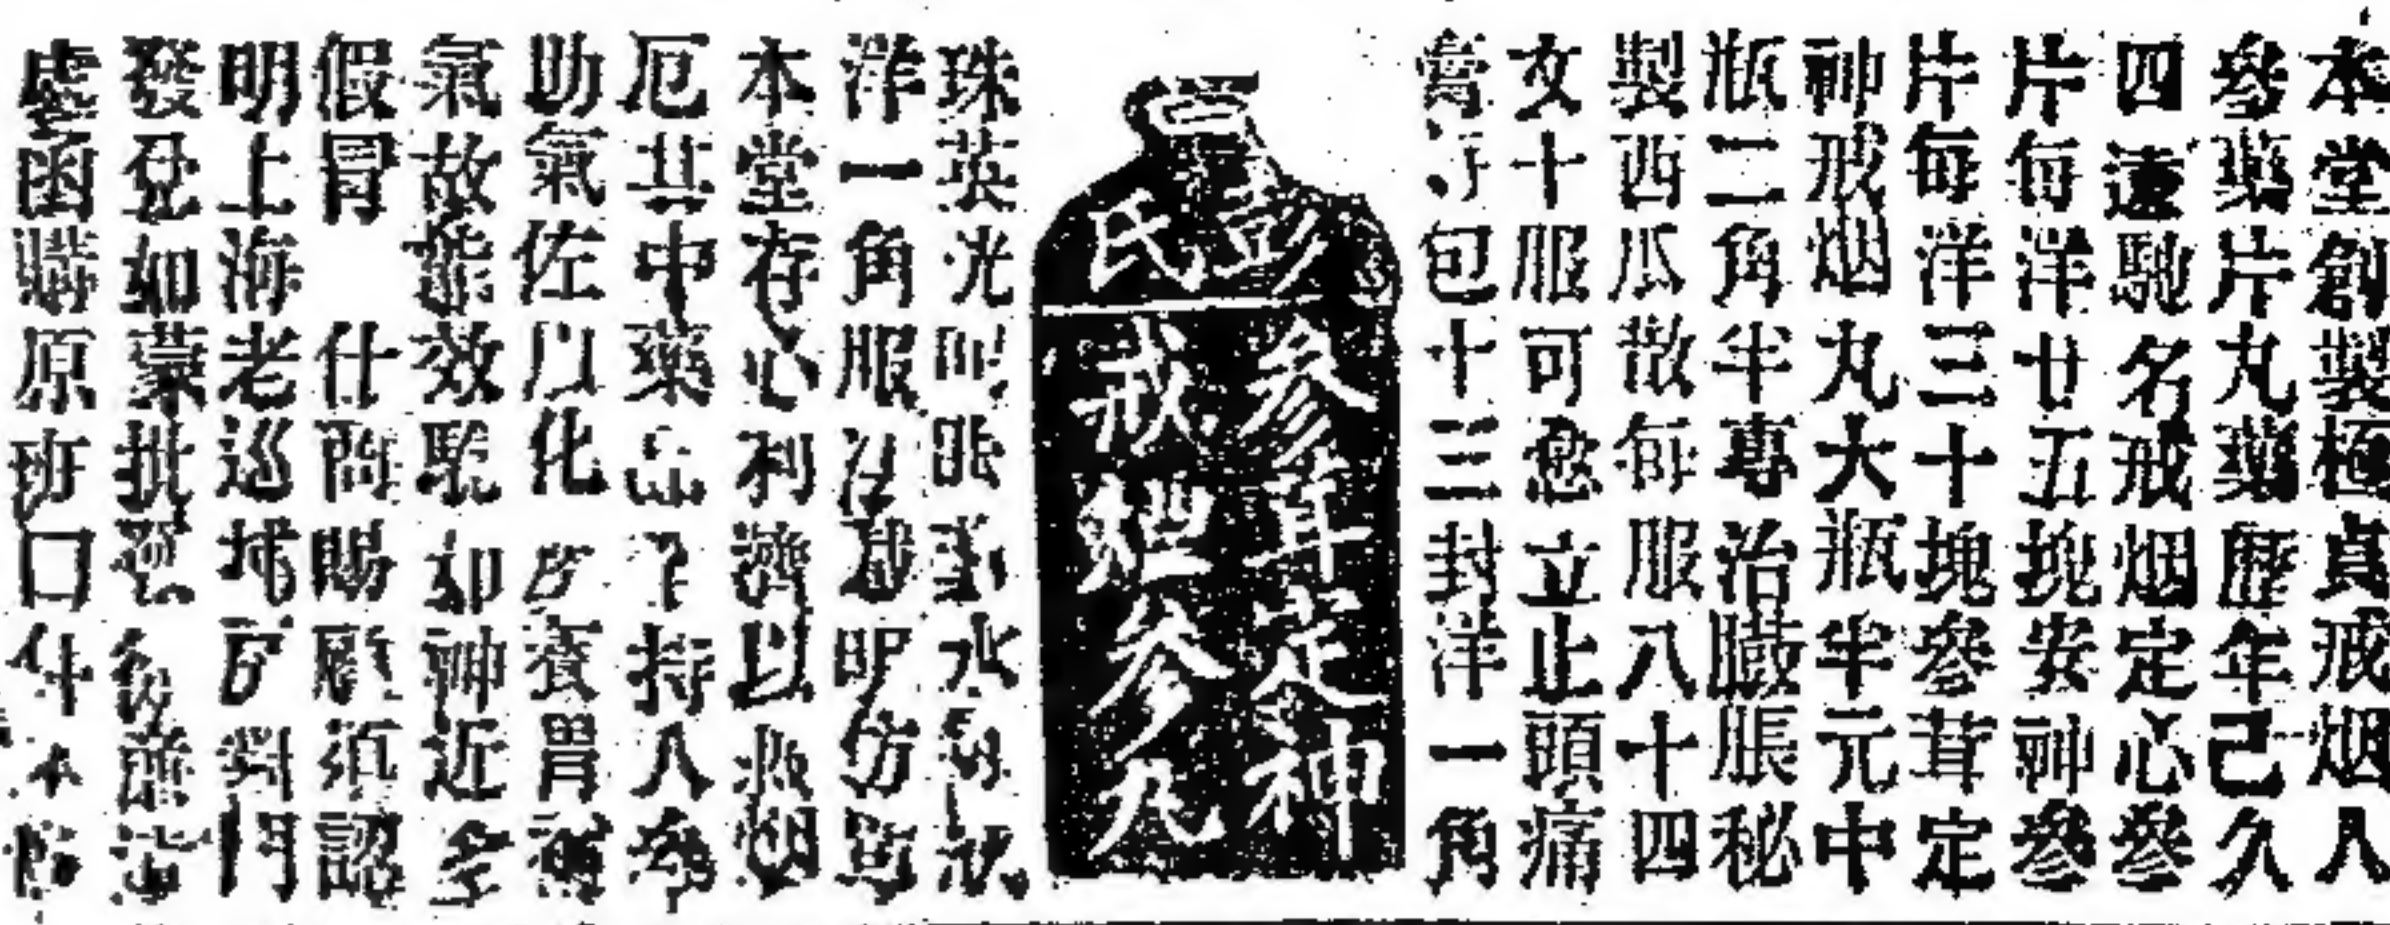 本堂創製極真戒烟人
參藥片丸藥歷年己久
四遠馳名戒烟定心參
片每洋廿五塊安神參
片每洋三十塊參茸定
神戒烟丸大瓶半元中
瓶二角半專治臌脹秘
製西瓜散每服八十四
文十服可愈立止頭痛
膏每包十三封洋一角
彭氏
參茸定神
戒烟參丸
珠英光明眼藥水
洋一角服法 明仿單
本堂存心利濟以救烟
厄其中藥品 持人參
助氣佐以化 養胃補
氣故能效驗如神近多
假冒 什商賜顧須認
明上海老巡捕房對門
發兌如蒙批發
處函購原班回件